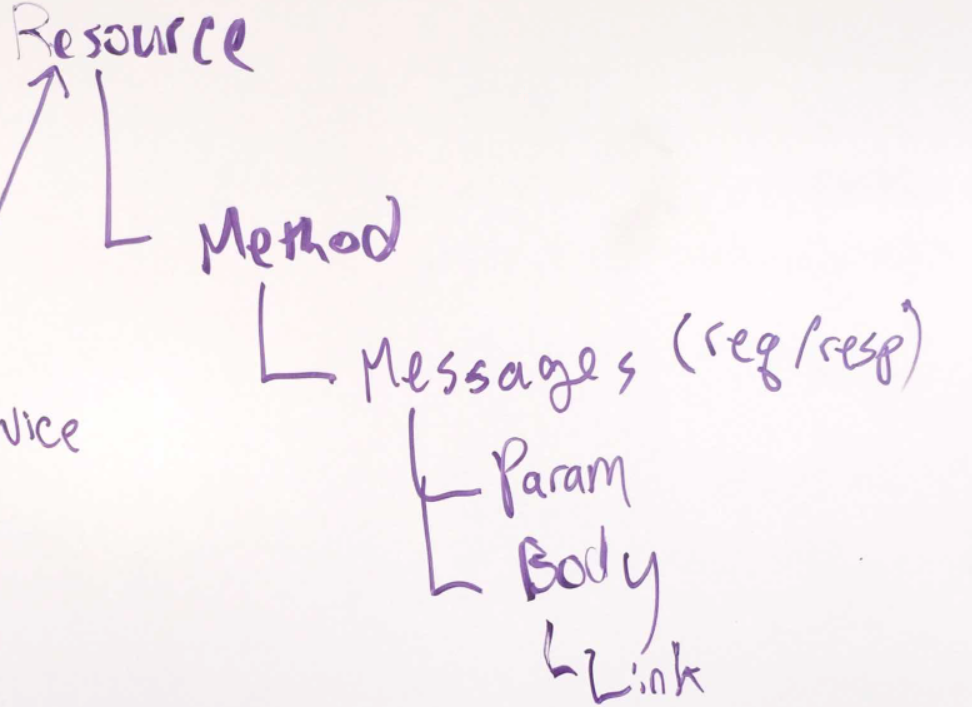 Resource
Method
Messages (req/resp)
vice
Param
Body
Link